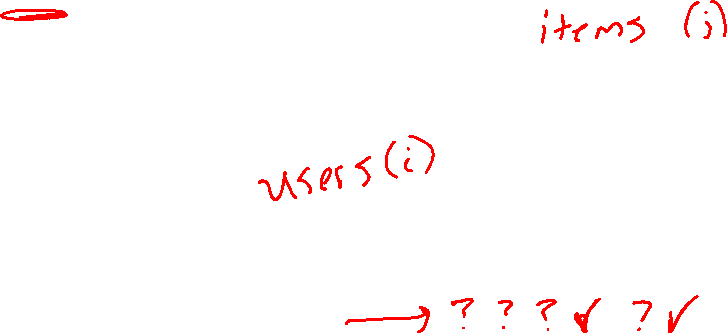 items (j)
users (i)
→ ? ? ? ✓ ? ✓